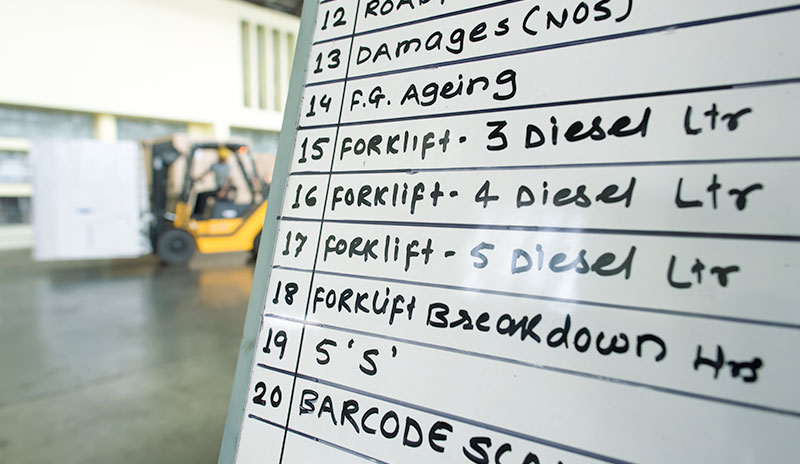 12
13 Damages (NOS)
14 F.G. Ageing
15 FORKlift - 3 Diesel Ltr
16 FORKlift - 4 Diesel Ltr
17 FORKlift - 5 Diesel Ltr
18 FORKlift Breakdown Hrs
19 5 'S'
20 BARCODE